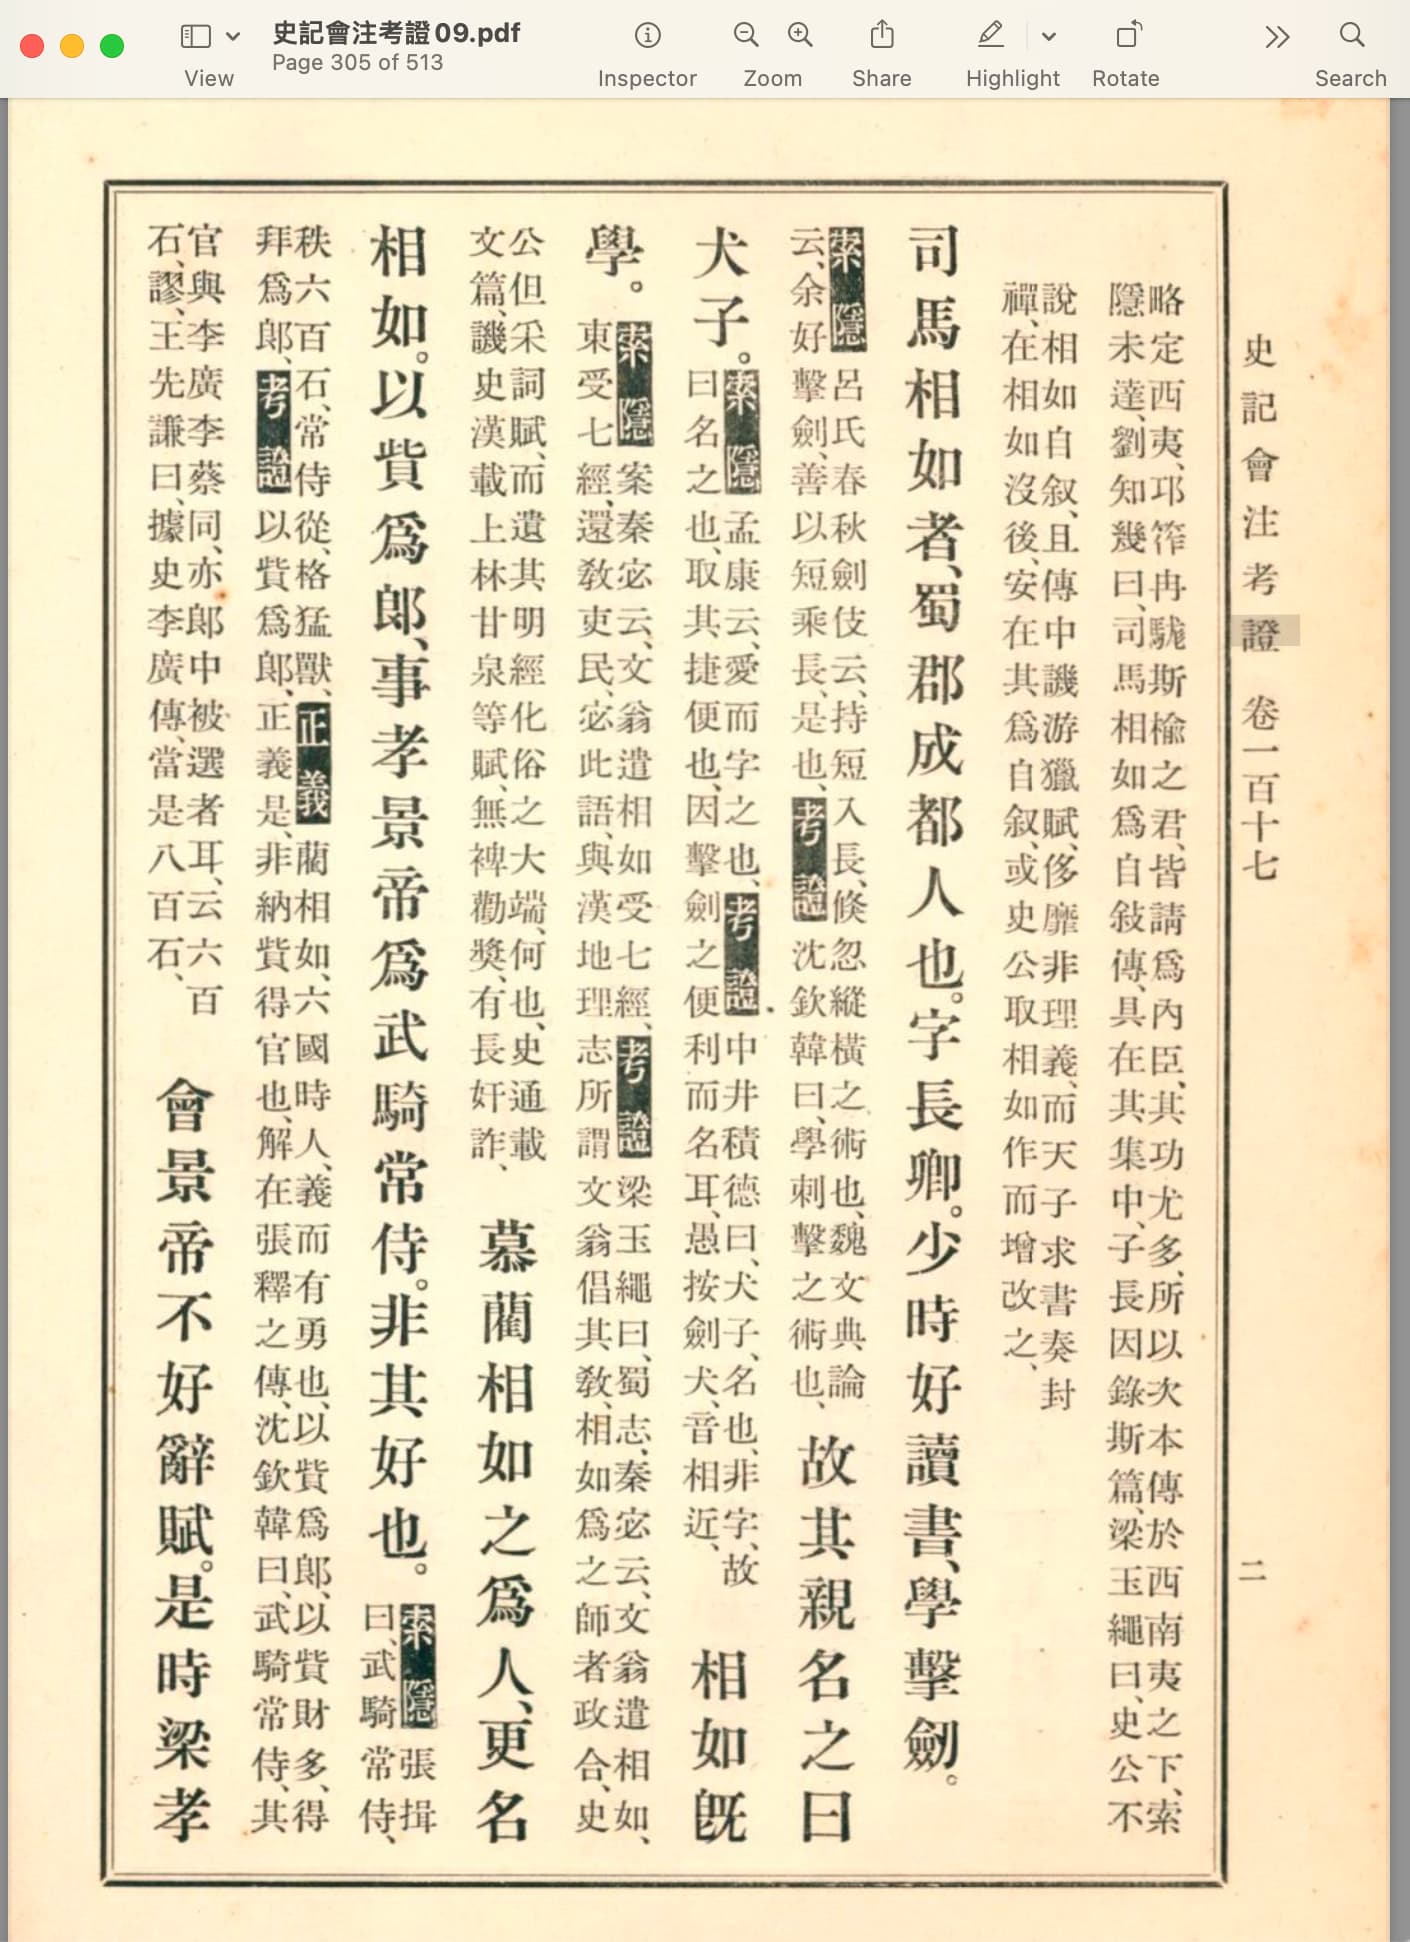 史記會注考證09.pdf
Page 305 of 513
View
Inspector
Zoom
Share
Highlight
Rotate
Search
史記會注考證 卷一百十七 二
略定西夷、邛筰冉駹斯楡之君、皆請爲內臣、其功尤多、所以次本傳於西南夷之下、索
隱未達、劉知幾曰、司馬相如爲自敍傳、具在其集中、子長因錄斯篇、梁玉繩曰、史公不
說相如自叙、且傳中譏游獵賦、侈靡非理義、而天子求書奏封
禪、在相如沒後、安在其爲自叙、或史公取相如作而增改之、
司馬相如者、蜀郡成都人也。字長卿。少時好讀書、學擊劒。
索隱 呂氏春秋劍伎云、持短入長、倐忽縱橫之術也、魏文典論
云、余好擊劍、善以短乘長、是也、考證 沈欽韓曰、學刺擊之術也、
故其親名之曰
犬子。
索隱 孟康云、愛而字之也、考證 中井積德曰、犬子、名也、非字、故
曰名之也、取其捷便也、因擊劍之便利而名耳、愚按劍犬、音相近、
相如旣
學。
索隱 案秦宓云、文翁遣相如受七經、考證 梁玉繩曰、蜀志、秦宓云、文翁遣相如、
東受七經、還敎吏民、宓此語、與漢地理志所謂文翁倡其敎、相如爲之師者政合、史
公但采詞賦、而遺其明經化俗之大端、何也、史通載
文篇、譏史漢載上林甘泉等賦、無裨勸奬、有長奸詐、
慕藺相如之爲人、更名
相如。以貲爲郞、事孝景帝爲武騎常侍。非其好也。
索隱 張揖
曰、武騎常侍、
秩六百石、常侍從、格猛獸、正義 藺相如、六國時人、義而有勇也、以貲爲郞、以貲財多、得
拜爲郞、考證 以貲爲郞、正義是、非納貲得官也、解在張釋之傳、沈欽韓曰、武騎常侍、其
官與李廣李蔡同、亦郞中被選者耳、云六百
石、謬、王先謙曰、據史李廣傳、當是八百石、
會景帝不好辭賦。是時梁孝